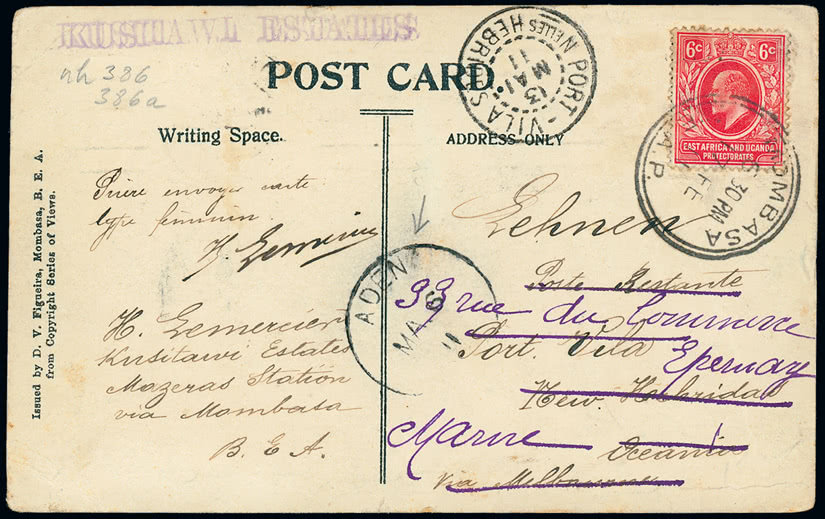 KUSITAWI ESTATES
nh 386
386a
POST CARD
PORT-VILA
13
MAI
11
NELLES HEBRIDES
6c 6c
EAST AFRICA AND UGANDA
PROTECTORATES
MOMBASA
30 PM
FE
Writing Space.
ADDRESS ONLY
Prière envoyer carte
type féminin.
H. Lemercier
H. Lemercier
Kusitawi Estates
Mazeras Station
via Mombasa
B. E. A.
ADEN
MA 6
11
Lehnen
Poste Restante
33 rue du Commerce
Port Vila Epernay
New Hebridas
Marne Oceania
Via Melbourne
Issued by D. V. Figueira, Mombasa, B. E. A.
from Copyright Series of Views.